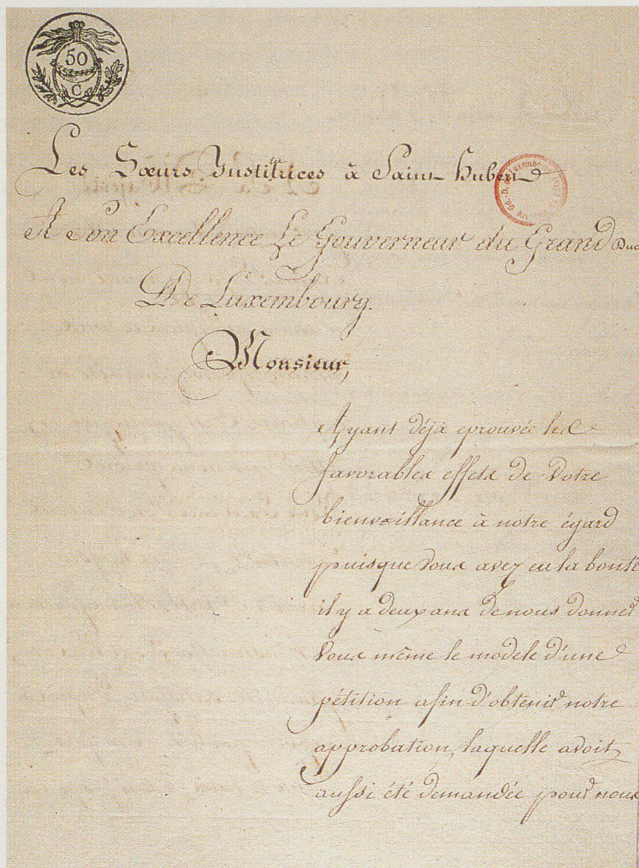 50
C
Les Sœurs Institutrices à Saint-Hubert
A Son Excellence Le Gouverneur du Grand Duc
De Luxembourg.
Monsieur,
Ayant déjà eprouvée les
favorables effets de Votre
bienveillance à notre égard
puisque vous avez eu la bonté
il y a deux ans de nous donner
Vous même le modele d'une
pétition afin d'obtenir notre
approbation, laquelle avoit
aussi été demandée pour nous